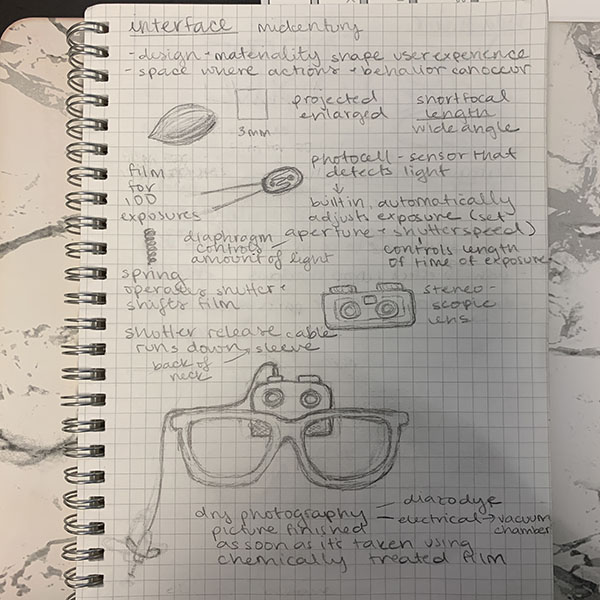 interface midcentury
- design + materiality shape user experience
- space where actions + behavior can occur
3mm
projected
enlarged
short focal
length
wide angle
film
for
100
exposures
photocell - sensor that
detects light
built in, automatically
adjusts exposure (set
aperture + shutterspeed)
diaphragm
controls
amount of light
controls length
of time of exposure
spring
operates shutter +
shifts film
stereo-
scopic
lens
shutter release cable
runs down sleeve
back of
neck
dry photography
diazodye
electrical → vacuum
chamber
picture finished
as soon as its taken using
chemically treated film